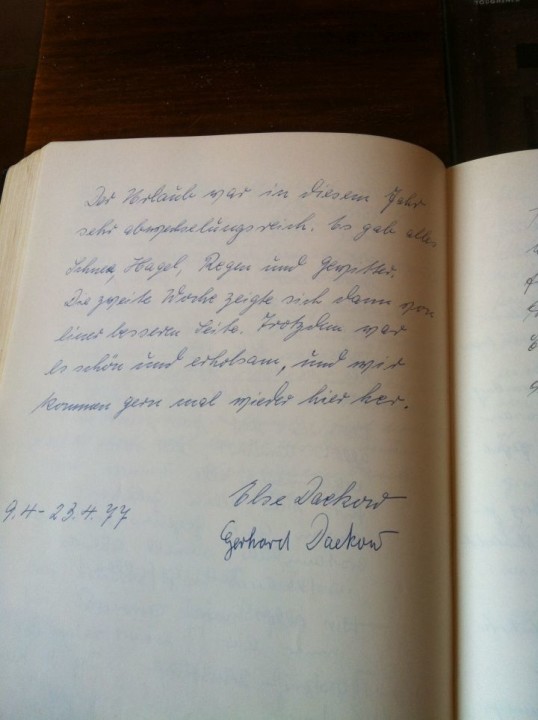 Der Urlaub war in diesem Jahr
sehr abwechselungsreich. Es gab alles
Schnee, Hagel, Regen und Gewitter.
Die zweite Woche zeigte sich dann von
einer besseren Seite. Trotzdem war
es schön und erholsam, und wir
kommen gern mal wieder hier her.
Else Daekow
9.4 - 23.4.77
Gerhard Daekow